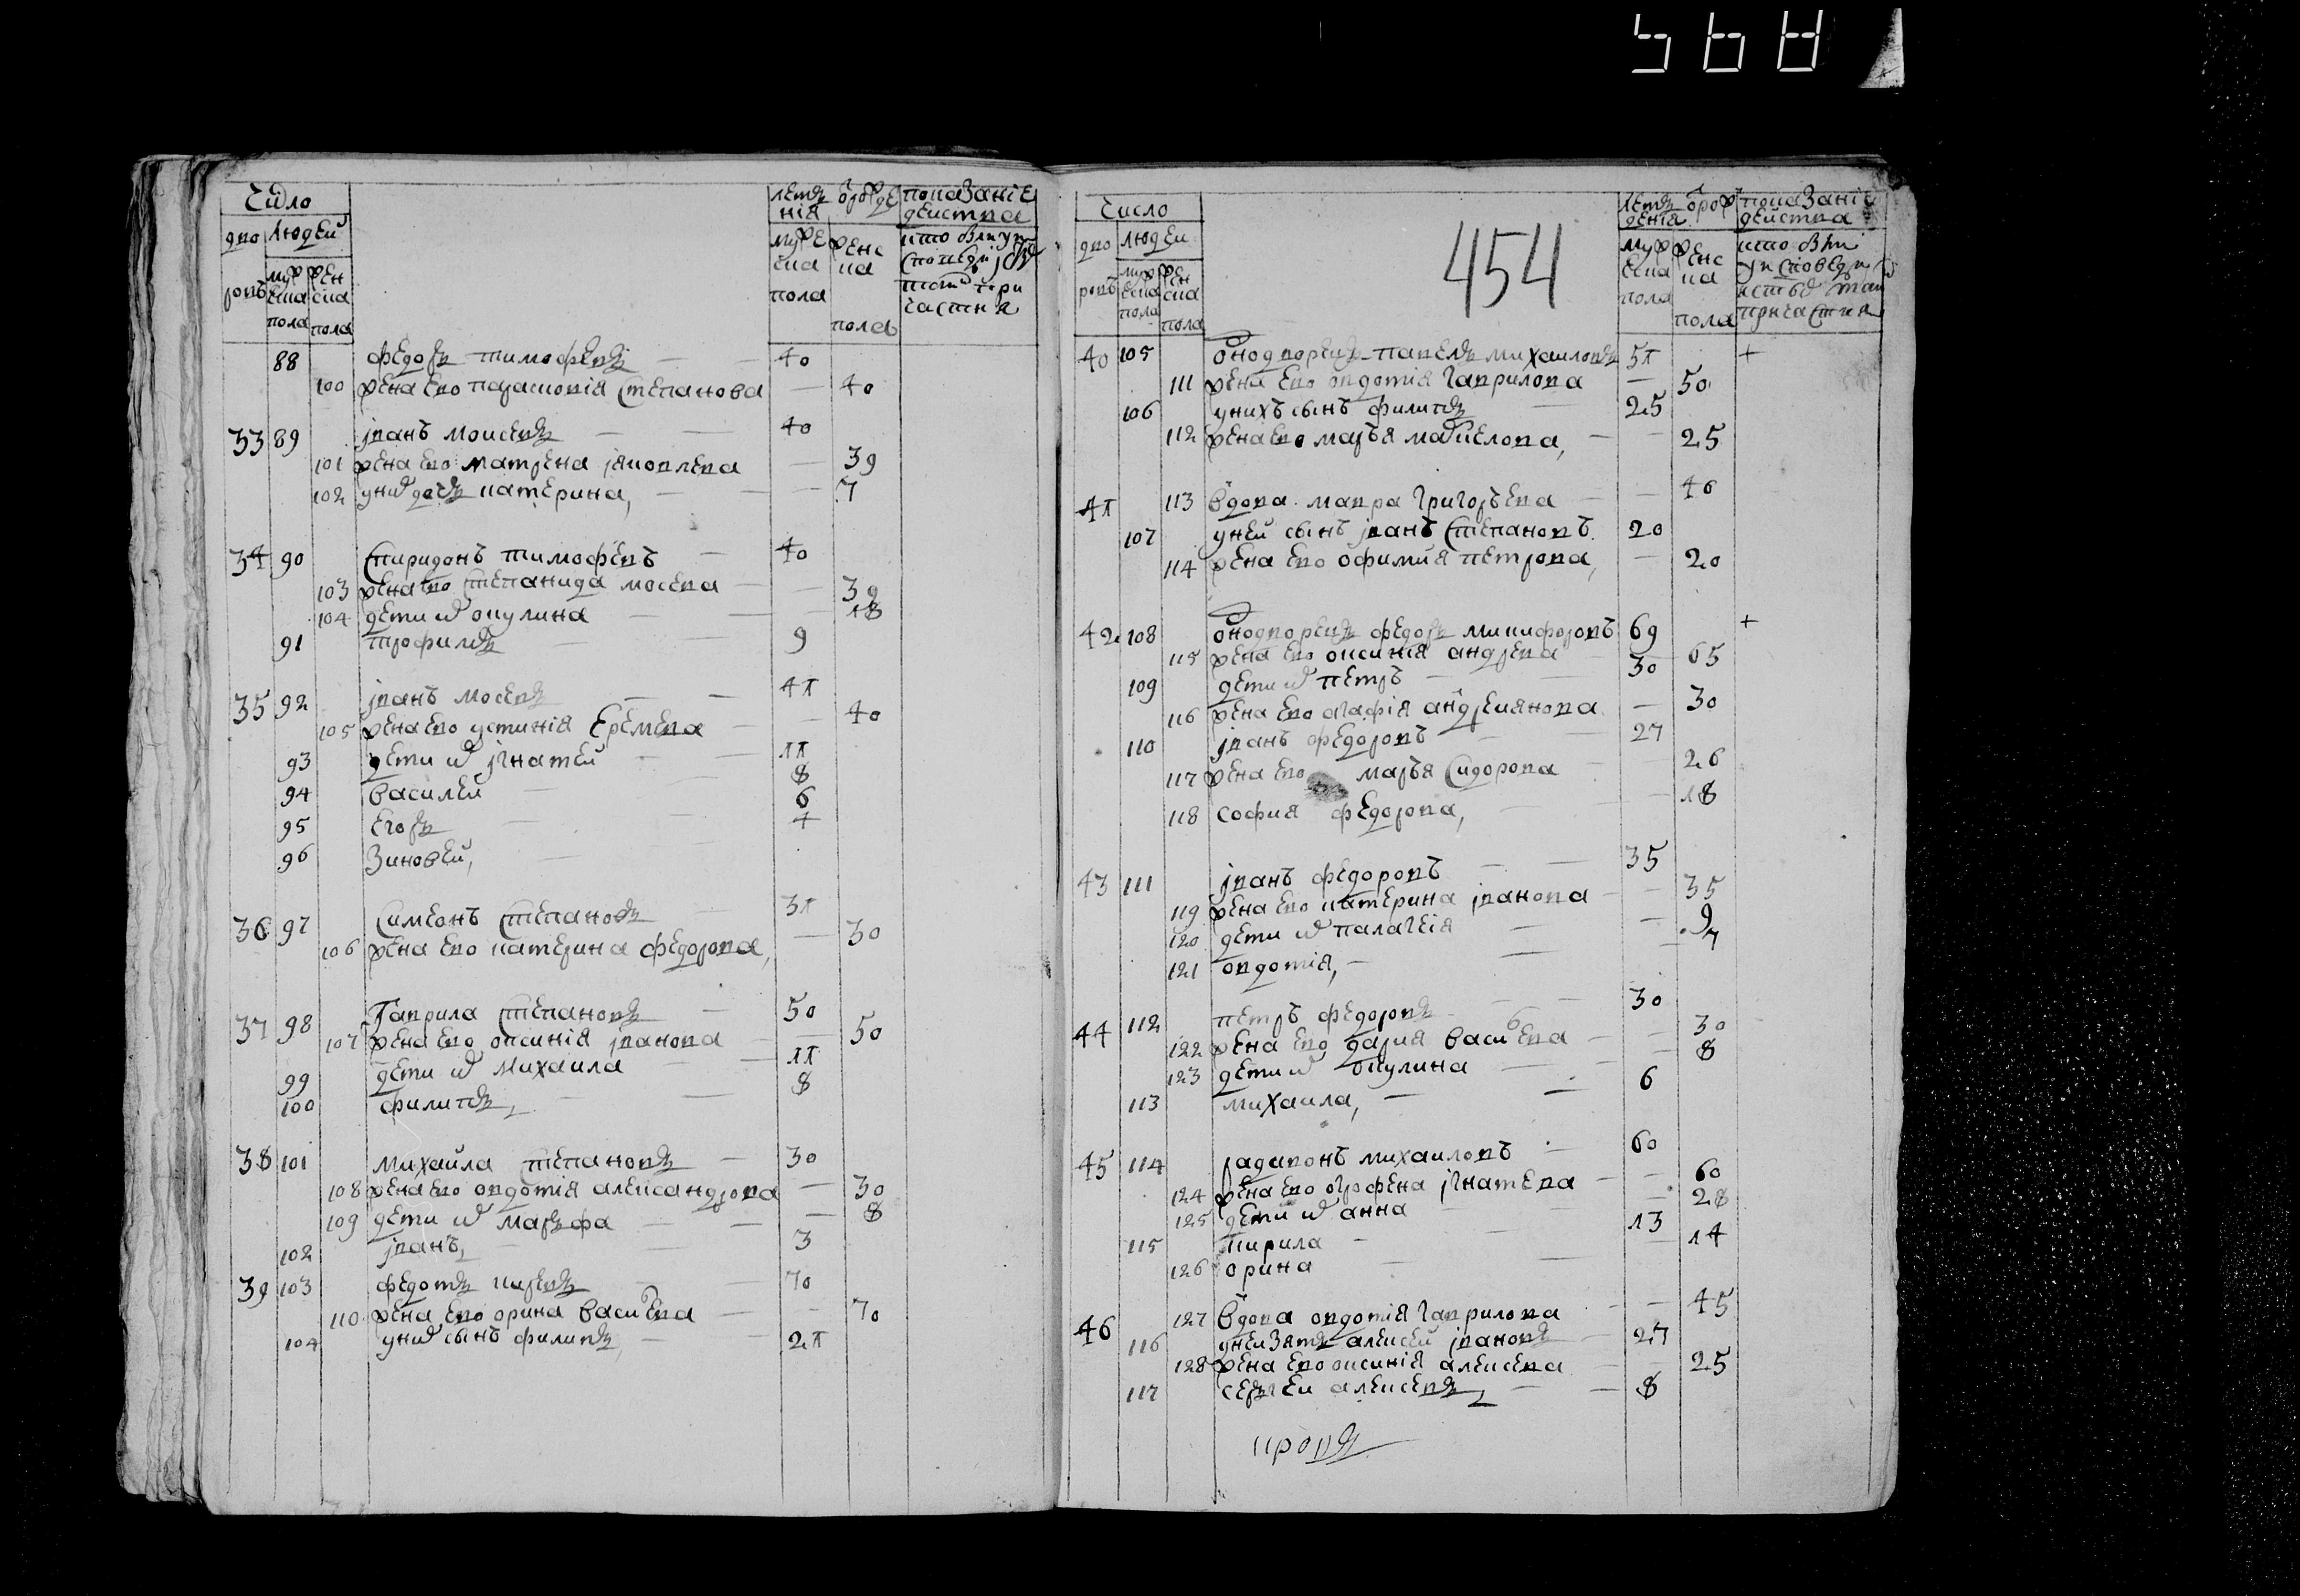 Число
дво ровъ
людей
муже ска пола
жен ска пола
летъ от рожде нія
муже ска пола
женс ка пола
показаніе действа
кто былъ у исповеди и св таинъ при частия
88 Федоръ Тимофеевъ — 40
100 жена ево Парасковия Степанова — 40
33 89 Іванъ Моисеевъ — — 40
101 жена ево Матрена Іяковлева — 39
102 у них дочь Катерина, — — 7
34 90 Спиридонъ Тимофеевъ — 40
103 жена ево Степанида Мосеева — — 39
104 дети их Окулина — — 18
91 Трофимъ — — 9
35 92 Іванъ Мосеевъ — — 41
105 жена ево Устиния Еремеева — — 40
93 дети их Ігнатей — — 11
94 Василей — 8
95 Егоръ — 6
96 Зиновей, — 4
36 97 Симеонъ Степановъ 31
106 жена ево Катерина Федорова, — 30
37 98 Гаврила Степановъ — 50
107 жена ево Оксиния Іванова — — 50
99 дети их Михаила — 11
100 Филипъ, — — 8
38 101 Михаила Степановъ — 30
108 жена ево Овдотия Александрова — 30
109 дети их Марфа — — — 8
102 Іванъ, — — 3
39 103 Федотъ Киреевъ — 70
110 жена ево Орина Васильева — — 70
104 у них сынъ Филипъ — 21
568
454
Число
дво ровъ
людей
муж ска пола
жен ска пола
летъ от рож дения
муж еска пола
женс ка пола
показание действа
кто были у исповеди и св таин причастия
40 105 Однодворецъ Павелъ Михаиловъ 51 +
111 жена ево Овдотия Гаврилова — 50
106 у нихъ сынъ Филипъ — 25
112 жена ево Марья Мануелова, — — 25
41 113 вдова Мавра Григорьева — — 40
107 у ней сынъ Іванъ Степановъ 20
114 жена ево Офимия Петрова, — 20
42 108 Однодворецъ Федоръ Микифоровъ 69 +
115 жена ево Оксиния Андреева — 65
109 дети их Петръ — 30
116 жена ево Огафия Андреиянова — 30
110 Іванъ Федоровъ — 27
117 жена ево Марья Сидорова — — 26
118 София Федорова, — — 18
43 111 Іванъ Федоровъ — — 35
119 жена ево Катерина Іванова — — 35
120 дети их Палагея — — 9
121 Овдотия, — — 7
44 112 Петръ Федоровъ — — 30
122 жена ево Дария Васильева — — 30
123 дети их Окулина — — 8
113 Михаила, — — 6
45 114 Радивонъ Михаиловъ — 60
124 жена ево Огрофена Ігнатева — — 60
125 дети их Анна — — 28
115 Кирила — 13
126 Орина — — 14
46 127 вдова Овдотия Гаврилова — — 45
116 у ней зять Алексей Івановъ — 27
128 жена ево Оксиния Алексеева — — 25
117 Сергей Алексеевъ, — — 8